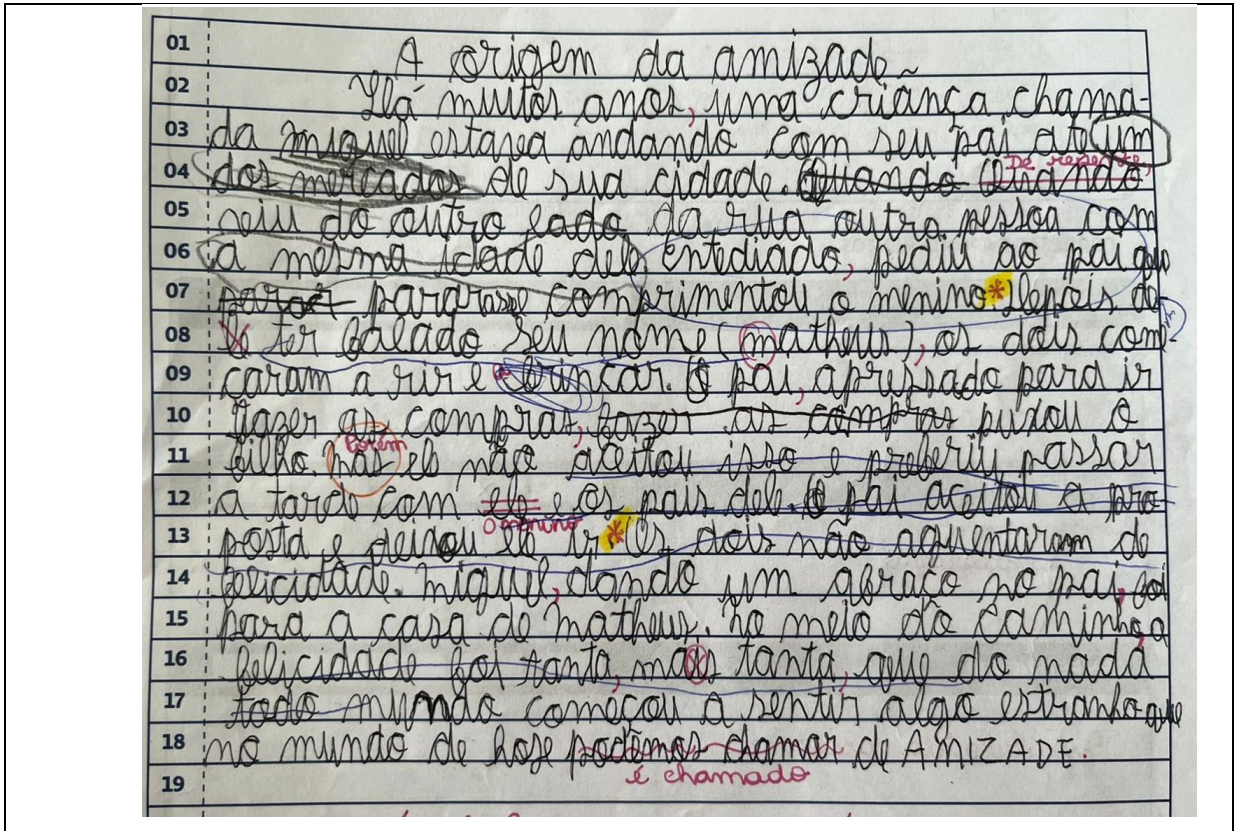 01 A origem da amizade
02 Há muitos anos, uma criança chama-
03 da miguel estava andando com seu pai até um
De repente,
04 dos mercados de sua cidade. Quando Quando
05 viu do outro lado da rua outra pessoa com
06 a mesma idade dele entediado, pediu ao pai que
07 parar pararasse comprimentou o menino* depois de
08 ter falado seu nome (matheus), os dois com
09 caram a rir e brincar. O pai, apressado para ir
10 fazer as compras, fazer as compras puxou o
Porém
11 filho. mas ele não aceitou isso e preferiu passar
12 a tarde com ele e os pais dele. O pai aceitou a pro-
o menino
13 posta e deixou ele ir* Os dois não aguentaram de
14 felicidade. miguel, dando um abraço no pai, foi
15 para a casa de matheus. no meio do caminho, a
16 felicidade foi tanta, mas tanta, que do nada
17 todo mundo começou a sentir algo estranho que
18 no mundo de hoje podemos chamar de AMIZADE.
é chamado
19